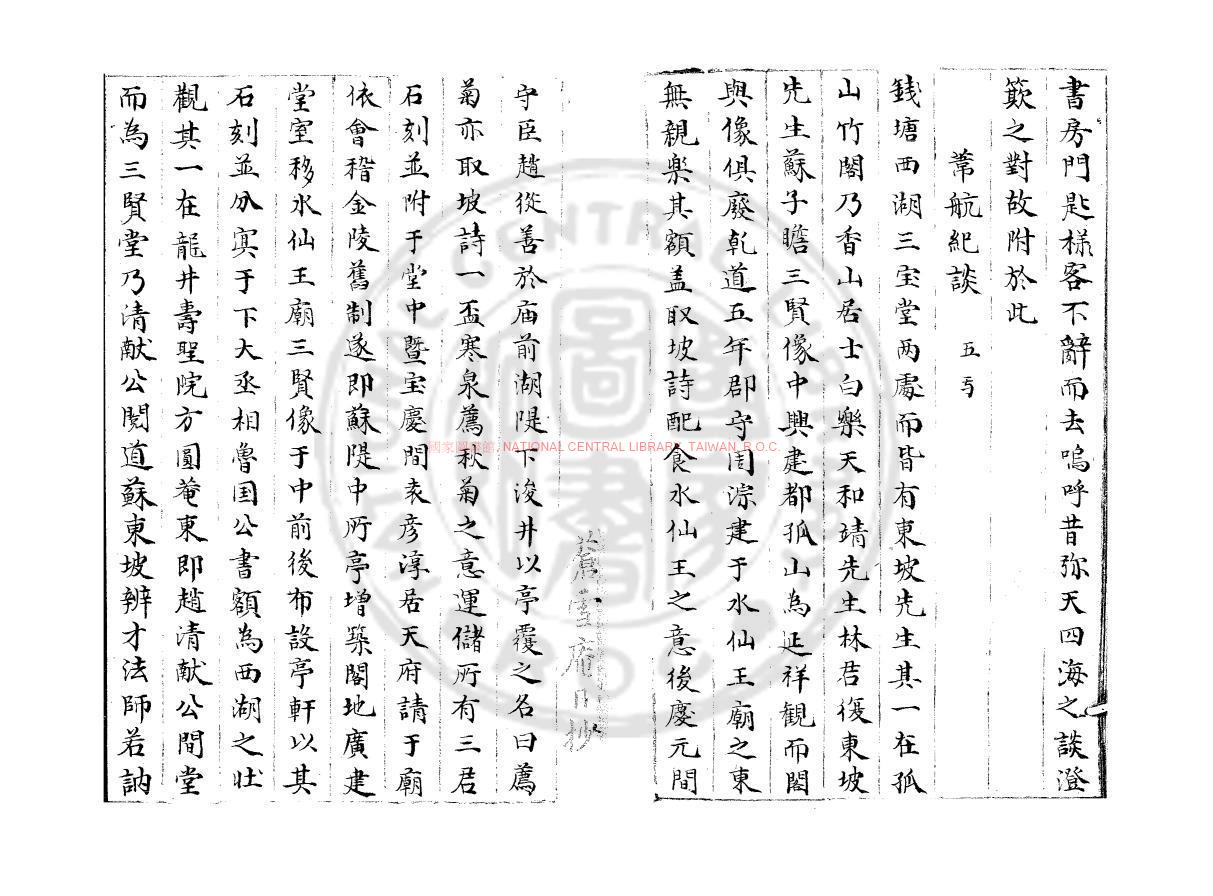 書房門匙様客不辭而去嗚呼昔弥天四海之談澄
籔之對故附於此
葦航紀談 五丂
錢塘西湖三宝堂两處而皆有東坡先生其一在孤
山竹閣乃香山居士白樂天和靖先生林君復東坡
先生蘇子瞻三賢像中興建都孤山為延祥觀而閣
與像俱廢乾道五年郡守周淙建于水仙王廟之東
無親楽其額盖取坡詩配食水仙王之意後慶元間
蒼雪庵日抄
守臣趙從善於庙前湖隄下浚井以亭覆之名曰薦
菊亦取坡詩一盃寒泉薦秋菊之意運儲所有三君
石刻並附于堂中暨宝慶間袁彦淳居天府請于廟
依會稽金陵舊制遂即蘇隄中所亭增築閣地廣建
堂室移水仙王廟三賢像于中前後布設亭軒以其
石刻並分寘于下大丞相魯国公書額為西湖之壮
觀其一在龍井壽聖院方圓菴東即趙清献公間堂
而為三賢堂乃清献公閱道蘇東坡辨才法師若訥
國家圖書館, NATIONAL CENTRAL LIBRARY, TAIWAN, R.O.C.